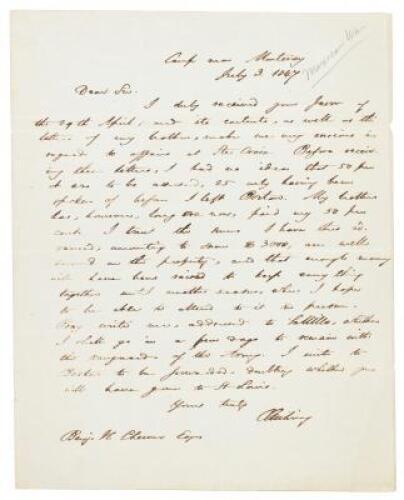 Camp near Monterey
July 3. 1847
Mexican War
Dear Sir.
I duly received your favor of
the 29th April, and its contents, as well as the
letters of my brother, make me very anxious in
regard to affairs at Ste Croix. Before receiv-
ing these letters, I had no idea that 50 per
ct are to be assessed, 25 only having been
spoken of before I left Boston. My brother
has, however, long ere now, paid my 50 per
cent. I trust the sums I have thus
amounting to some $3000, are well
secured on the property, and that enough money
will have been raised to keep everything
together until another season, when I hope
to be able to attend to it in person.
Pray write me, addressed to Saltillo, whither
I shall go in a few days to remain with
the vanguard of the Army. I write to
Boston to be forwarded, doubting whether you
will have gone to St Louis.
Yours truly
C Cushing
Benj. H. Cheever Esqr